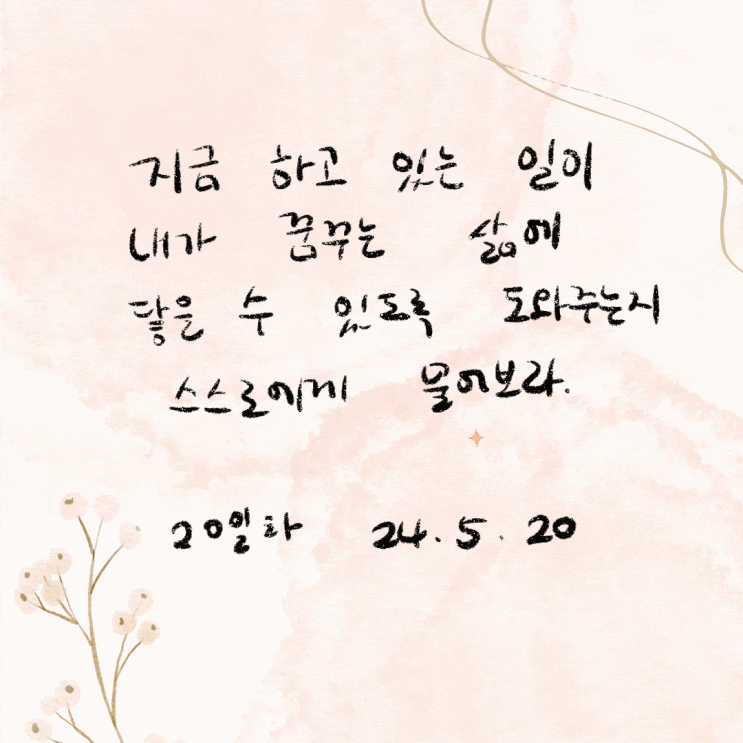 지금 하고 있는 일이
내가 꿈꾸는 삶에
닿을 수 있도록 도와주는지
스스로에게 물어보라.
20일차 24.5.20